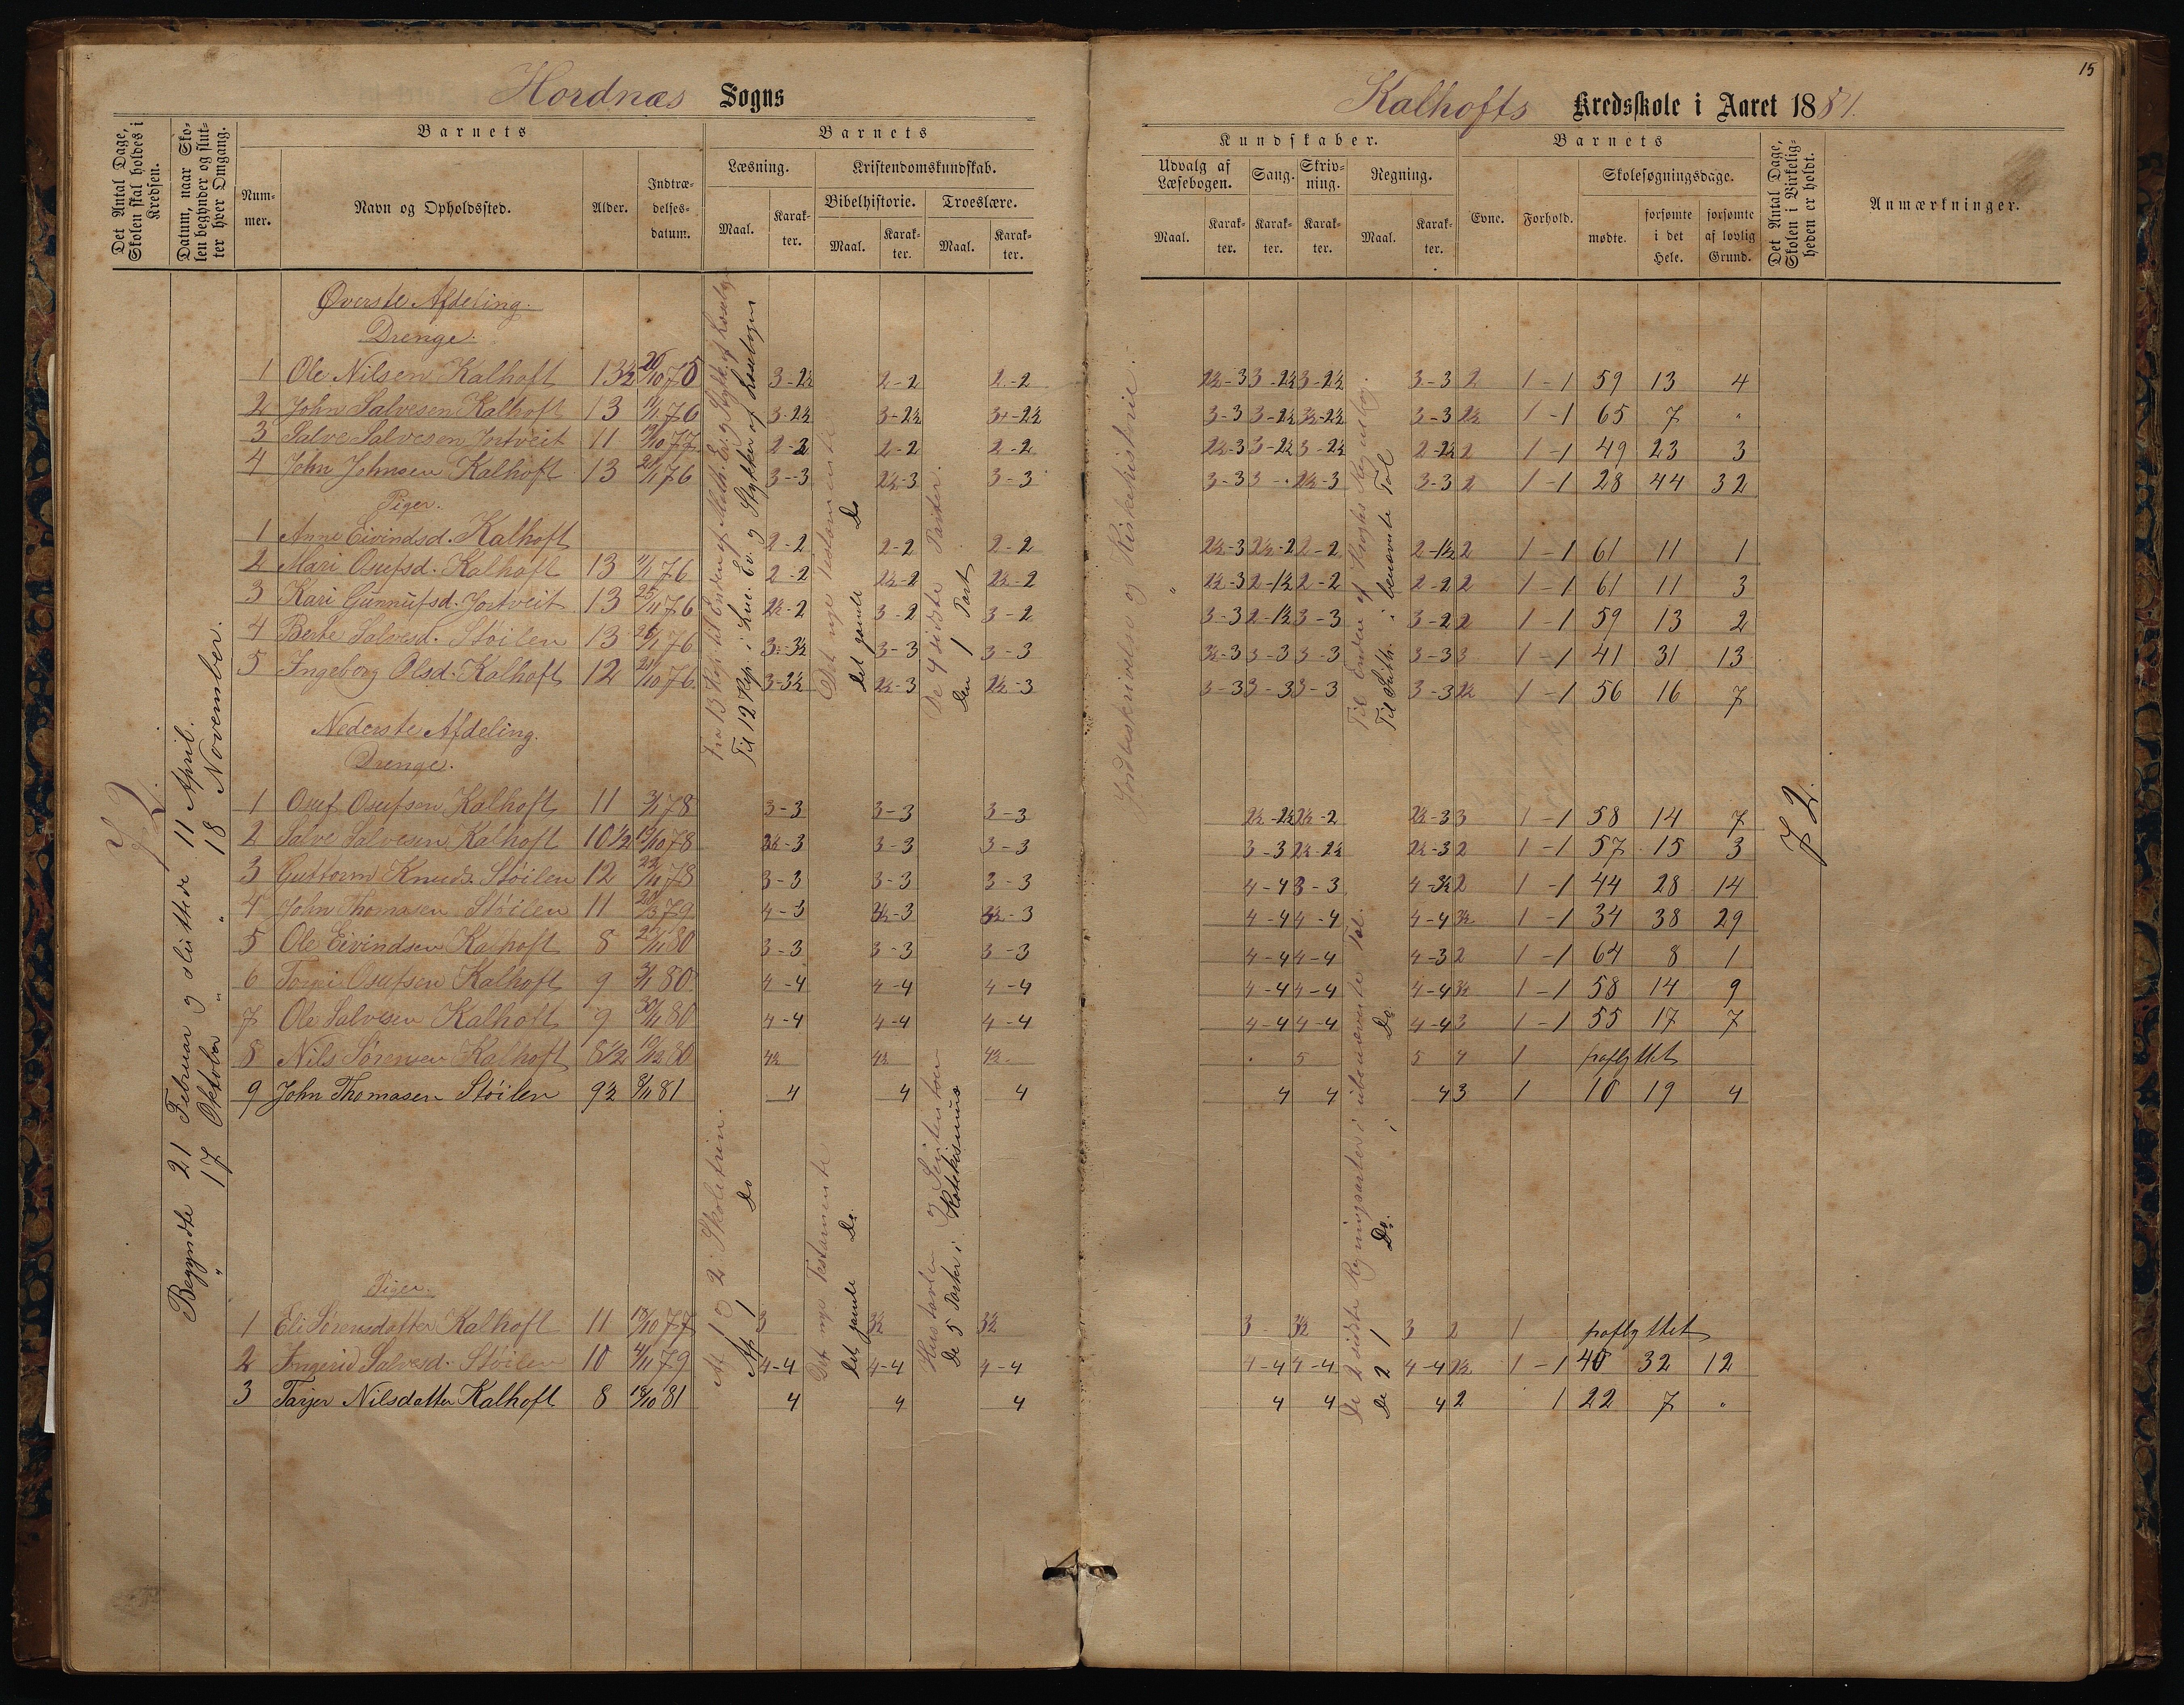 15
Hordnæs Sogns
Kalhofts Kredsskole i Aaret 1881.
Det Antal Dage, Skolen skal holdes i Kredsen.
Datum, naar Skolen begynder og slutter hver Omgang.
Barnets
Nummer.
Navn og Opholdssted.
Alder.
Indtrædelsesdatum.
Barnets
Læsning.
Maal.
Karakter.
Kristendomskundskab.
Bibelhistorie.
Maal.
Karakter.
Troeslære.
Maal.
Karakter.
Kundskaber.
Udvalg af Læsebogen.
Maal.
Karakter.
Sang.
Karakter.
Skrivning.
Karakter.
Regning.
Maal.
Karakter.
Barnets
Evne.
Forhold.
Skolesøgningsdage.
mødte.
forsømte i det Hele.
forsømte af lovlig Grund.
Det Antal Dage, Skolen i Virkeligheden er holdt.
Anmærkninger.
72.
Begyndte 21 Februar og sluttede 11 April.
" 17 Oktober " " 18 November.
Øverste Afdeling.
Drenge.
1 Ole Nilsen Kalhoft 13½ 20/10 75 3-2½ 2-2 2-2 2½-3 3-2½ 3-2½ 3-3 2 1-1 59 13 4
2 John Salvesen Kalhoft 13 11/1 76 3-2½ 3-2½ 3+-2½ 3-3 3-2½ 3½-2½ 3-3 2½ 1-1 65 7 "
3 Salve Salvesen Jortveit 11 19/10 77 2-3 2-2 2-2 2½-3 3-2½ 3-2½ 2-2½ 2 1-1 49 23 3
4 John Johnsen Kalhoft 13 21/1 76 3-3 2½-3 3-3 3-3 3-. 2½-3 3-3 2 1-1 28 44 32
Piger.
1 Anne Eivindsd. Kalhoft 2-2 2-2 2-2 2½-3 2½-2 2-2 2-1½ 2 1-1 61 11 1
2 Mari Osufsd. Kalhoft 13 11/1 76 2-2 2½-2 2½-2 2½-3 2-1½ 2-2 2-2 2 1-1 61 11 3
3 Kari Gunnufsd. Jortveit 13 25/11 76 2½-2 3-2 3-2 3-3 2-1½ 3-3 3-2 2 1-1 59 13 2
4 Berte Salvesd. Støilen 13 26/1 76 3-3½ 3-3 3-3 3½-3 3-3 3-3 3-3 3 1-1 41 31 13
5 Ingeborg Olsd. Kalhoft 12 21/10 76 3-3½ 2½-3 2½-3 3-3 3-3 3-3 3-3 2½ 1-1 56 16 7
Fra 13 Kap. til Enden af Math. Ev. og Stykker af Læsebogen
Til 12 Kap. i Luc. Ev. og Stykker af Læsebogen
Det nye Testamente
Det gamle Do
De 4 sidste Parter.
Den 1 Part
Jordbeskrivelse og Kirkehistorie.
"
Til Enden af Kroghs Regnebog.
Til Subtr. i benævnte Tal
Nederste Afdeling.
Drenge.
1 Osuf Osufsen Kalhoft 11 3/1 78 3-3 3-3 3-3 2½-2½ 2½-2 2½-3 3 1-1 58 14 7
2 Salve Salvesen Kalhoft 10½ 19/10 78 2½-3 3-3 3-3 3-3 2½-2½ 2½-3 2 1-1 57 15 3
3 Guttorm Knuds. Støilen 12 22/11 78 3-3 3-3 3-3 4-4 3-3 4-3½ 2 1-1 44 28 14
4 John Thomasen Støilen 11 20/3 79 4-3 3½-3 3½-3 4-4 4-4 4-4 3½ 1-1 34 38 29
5 Ole Eivindsen Kalhoft 8 2/11 80 3-3 3-3 3-3 4-4 4-4 4-3 2 1-1 64 8 1
6 Osufsen Kalhoft 9 3/1 80 4-4 4-4 4-4 4-4 4-4 4-4 3½ 1-1 58 14 9
7 Ole Salvesen Kalhoft 9 30/11 80 4-4 4-4 4-4 4-4 4-4 4-4 3 1-1 55 17 7
8 Nils Sørensen Kalhoft 8½ 10/12 80 4½ 4½ 4½ . 5 5 4 1 fraflyttet
9 John Thomasen Støilen 9½ 8/11 81 4 4 4 4 4 4 3 1 10 19 4
Piger.
1 Eli Sørensdatter Kalhoft 11 18/10 77 3 3½ 3½ 3 3½ 3 2 1 fraflyttet
2 Ingerid Salvesd. Støilen 10 4/11 79 4-4 4-4 4-4 4-4 4-4 4-4 2½ 1-1 40 32 12
3 Tarjer Nilsdatter Kalhoft 8 18/10 81 4 4 4 4 4 4 2 1 22 7 "
Af 1 og 2 Skoletrin.
Af 1 Do
Det nye Testamente
Det gamle Do.
Hustavlen og
De 5 Parter i Katekismus
De 2 sidste Regningsarter i ubenævnte Tal.
De 2 1 Do. i Do.
72.